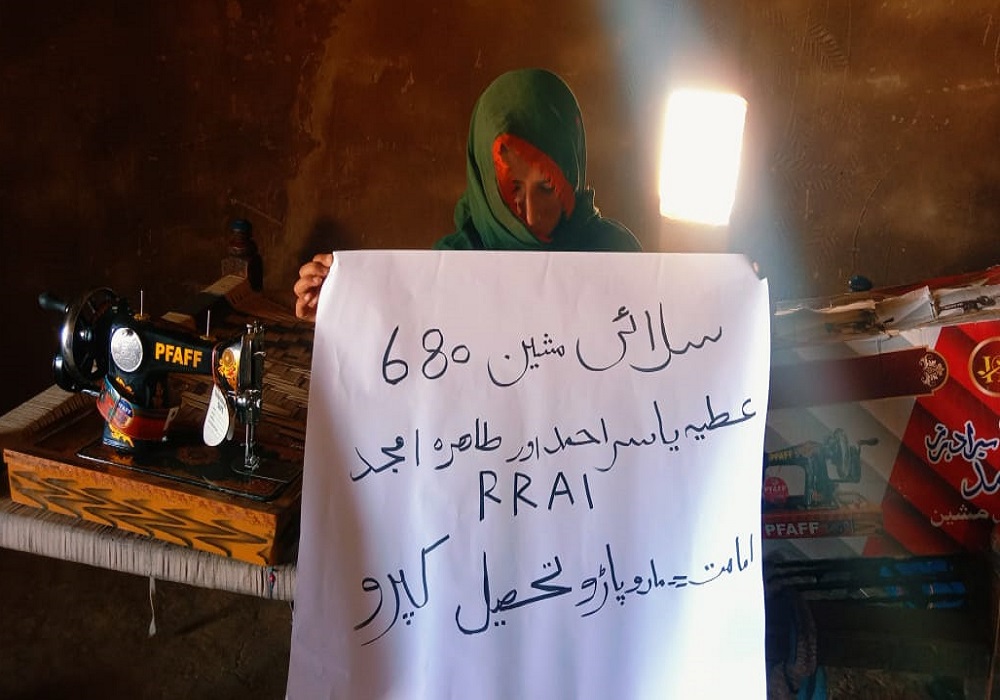 سلائی مشین 680
عطیہ یاسر احمد اور طاہرہ امجد
RRAI
امامت = مارو پاڑو تحصیل کپرو
PFAFF
PFAFF
مشین